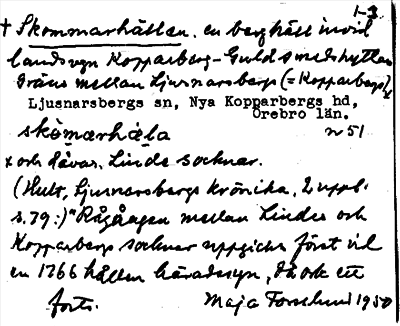 1-3.
+ Skommarhällen, en berghäll invid
landsvägen Kopparberg-Guldsmedshyttan
Gräns mellan Ljusnarsbergs (= Kopparbergs)x
Ljusnarsbergs sn, Nya Kopparbergs hd,
Örebro län.
skɷmarhäla nr 51
x och dåvar. Linde socknar.
(Hult, Ljusnarsbergs krönika, 2 uppl.
s. 79:) "Rågången mellan Lindes och
Kopparbergs socknar uppgicks först vid
en 1766 hållen häradssyn, då ock ett
forts. Maja Forslund 1950